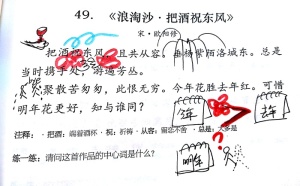 49. 《浪淘沙·把酒祝东风》
宋·欧阳修
把酒祝东风，且共从容。垂杨紫陌洛城东。总是
当时携手处，游遍芳丛。
聚散苦匆匆，此恨无穷。今年花胜去年红。可惜
明年花更好，知与谁同？
今年
去年
明年
?
注释：·把酒：端着酒杯·祝：祈祷·从容：留恋不舍·总是：大多是
练一练：请问这首作品的中心词是什么？